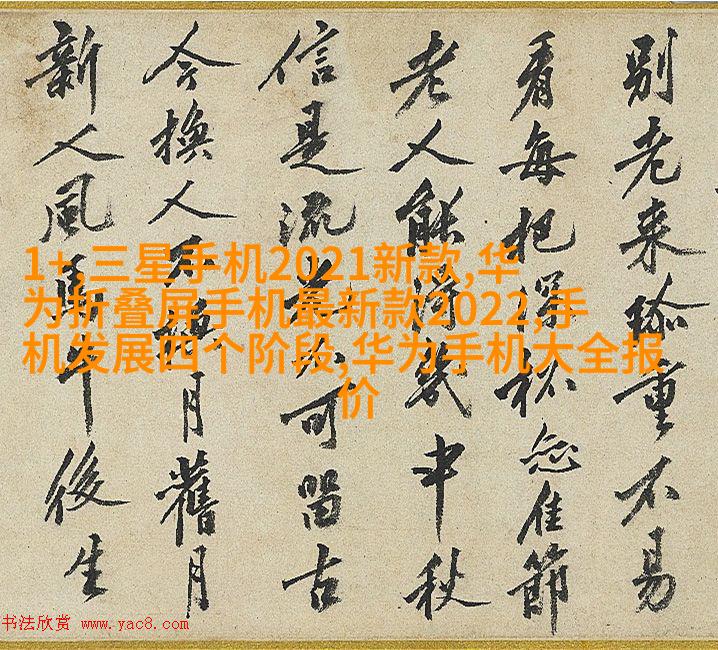 別老来珎重不易
看每把深杯佳節
老人能得幾中秋
信是流光不可留古
今換人不換月舊月
新人風馬牛後生
1+,三星手机2021新款,华
为折叠屏手机最新款2022,手
机发展四个阶段,华为手机大全报
价
书法欣赏 www.yac8.com